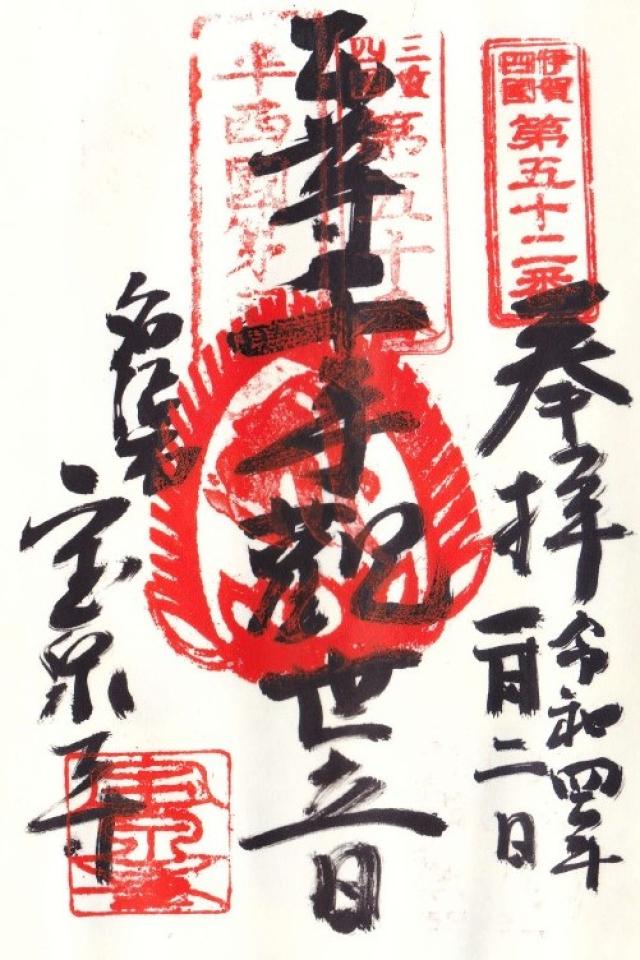 伊賀
四國
第五十二番
奉拝
令和四年
一月二日
三重
四国
第五十
準西國第
千手觀世音
宝泉寺